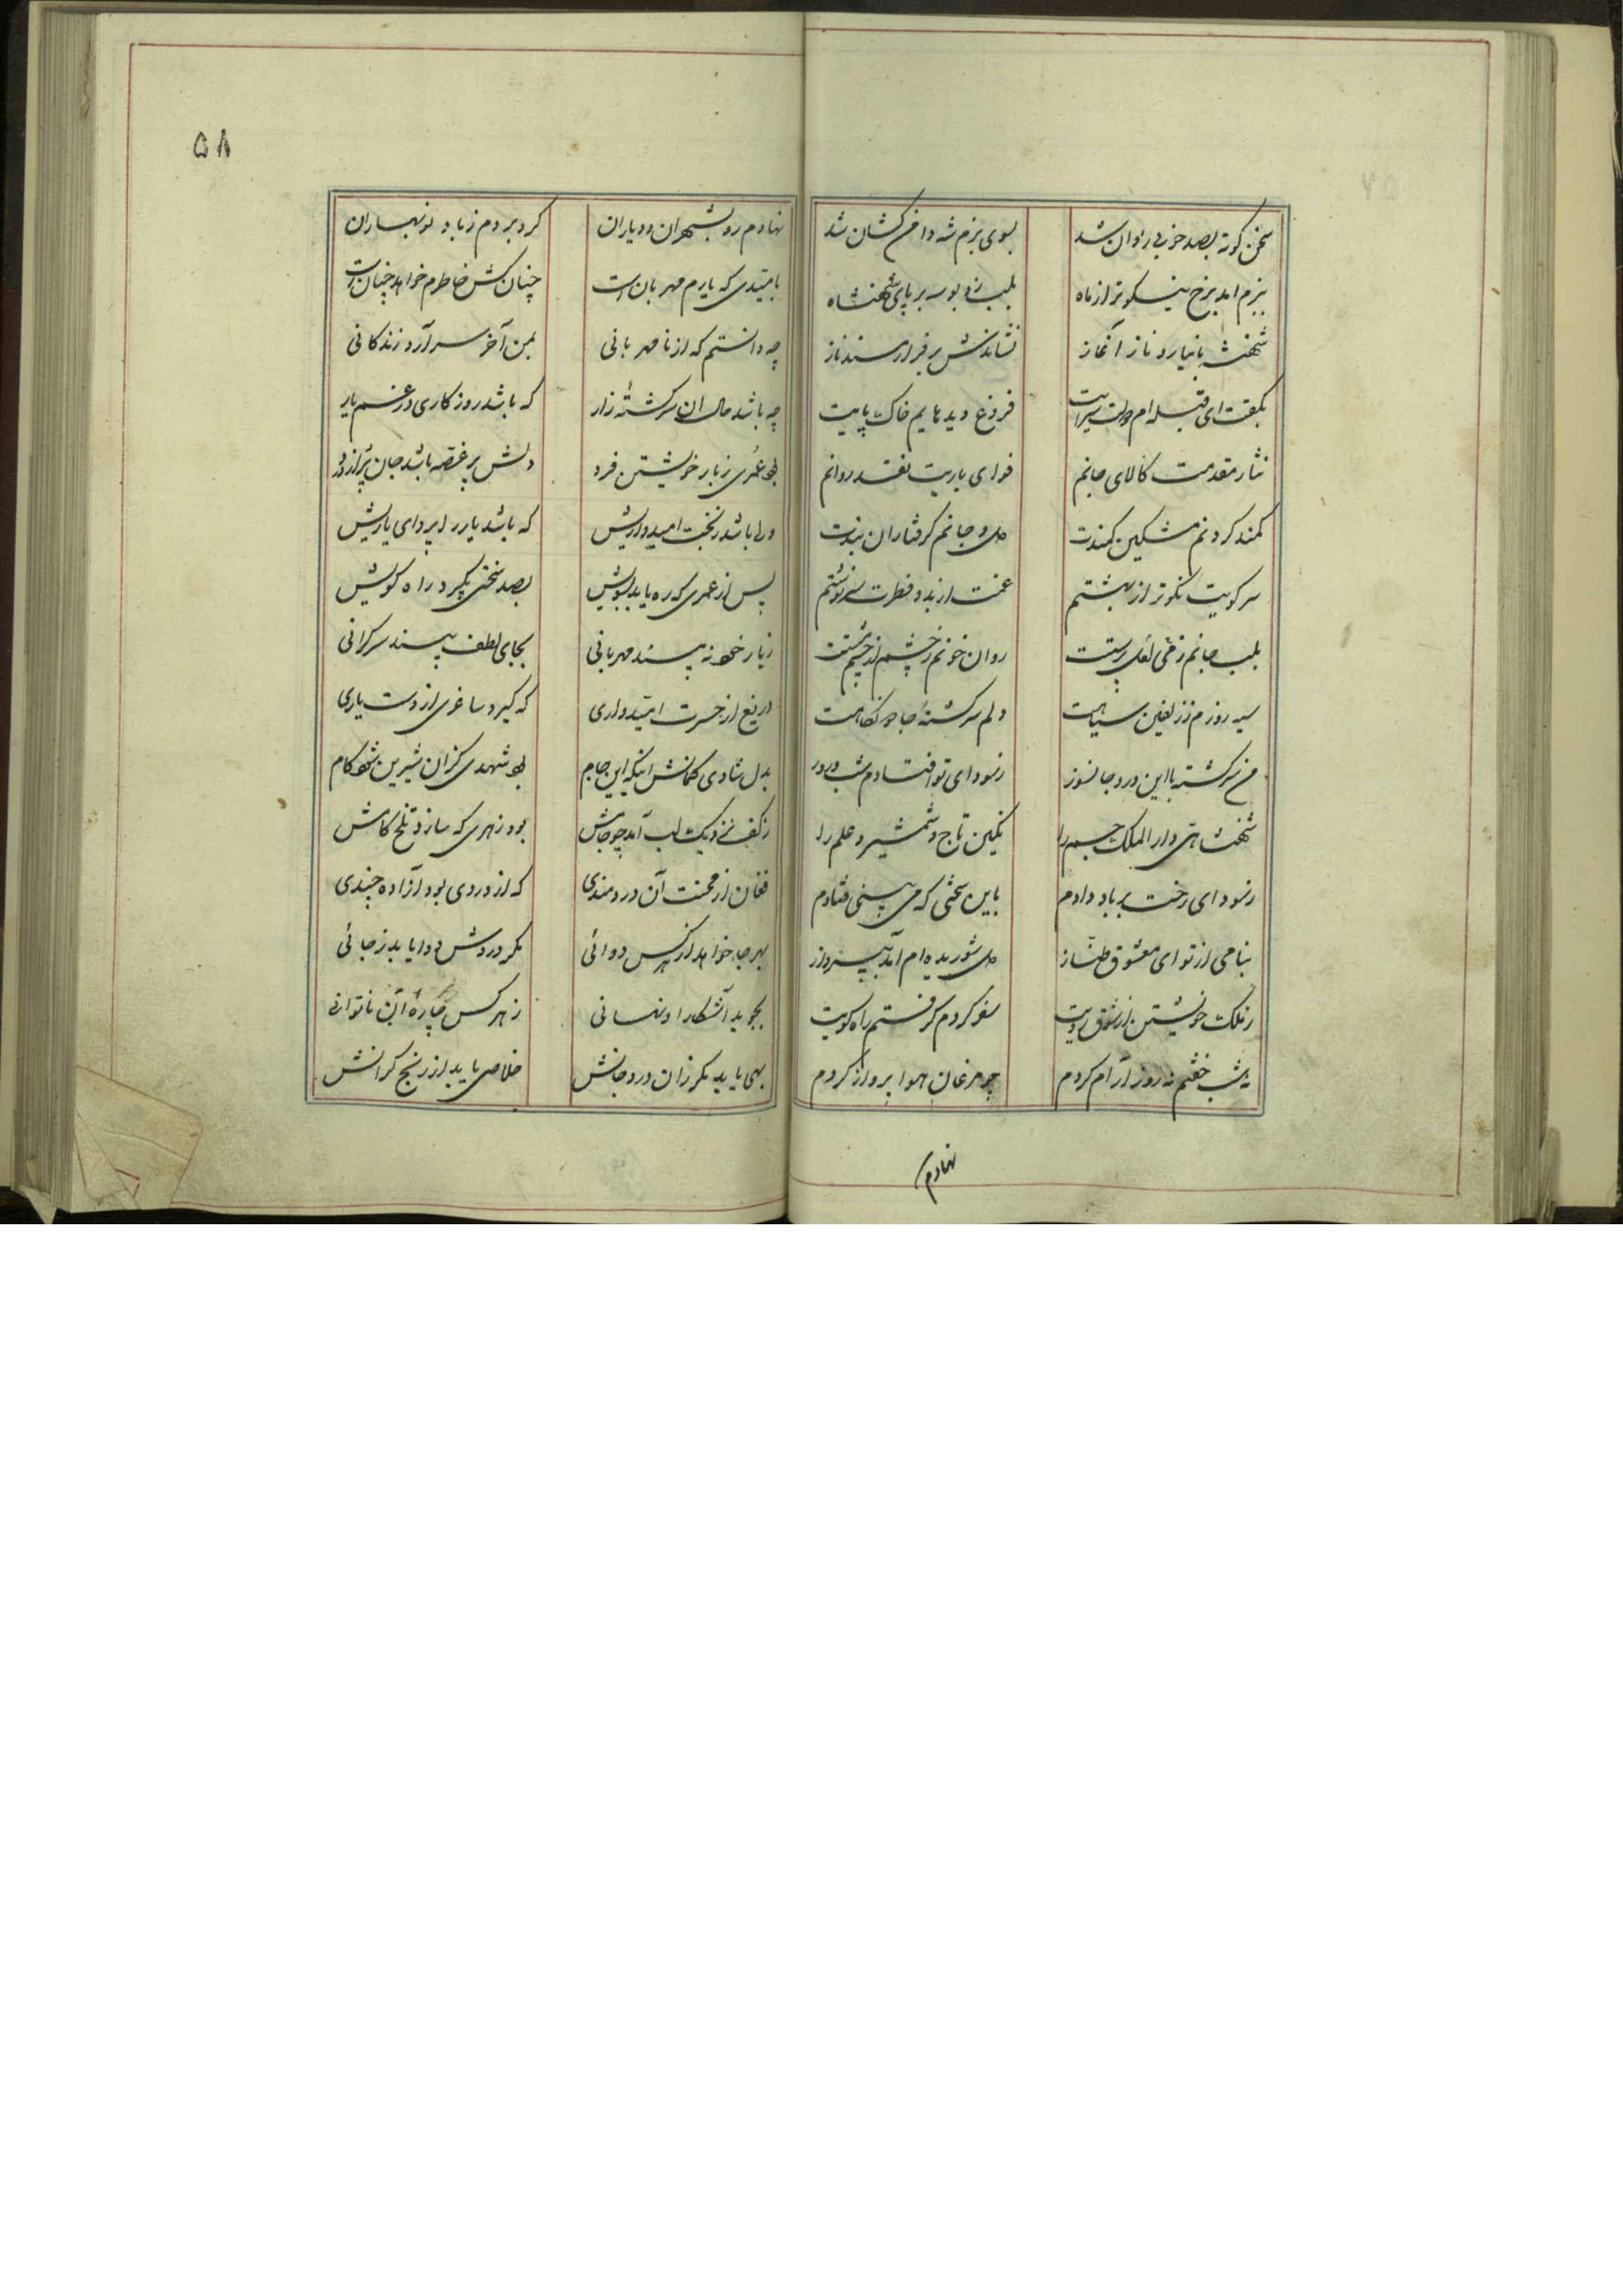 سخن کوته بصد خوبی روان شد بسوی بزم شه دامن کشان شد
ببزم آمد برخ نیکوتر از ماه بلب زد بوسه بر پای شهنشاه
شهنشه با نیاز و ناز آغاز نشاندش بر فراز مسند ناز
بگفت ای قبله ام فروغ دیده هایم خاک پایت
نثار مقدمت کالای جانم فدای یاریت نقد روانم
کمند کردنم مشکین کمندت دل و جانم گرفتاران بندت
سر کویت نکوتر از بهشتم غمت از بدو فطرت سرنوشتم
بلب جانم ز لعل روان خونم ز چشم از چشم مستت
سیه روزم ز زلفین سیاهت دلم سرکشته جادو نگاهت
من سرکشته با این درد جانسوز ز سودای تو افتادم شب و روز
شهنشاهی دار الملک جم را نگین تاج و شمشیر و علم را
ز سودای رخت بر باد دادم باین سختی که می بینی فتادم
بنامی از تو ای معشوق طناز دل شوریده ام آمد بپرواز
ز ملک خویشتن از شوق رویت سفر کردم گرفتم راه کویت
نه شب خفتم نه روز آرام کردم چو مرغان هوا پرواز کردم
نهادم
۵۸
نهادم رو بشهران و دیاران گرو بردم ز باد نوبهاران
بامیدی که یارم مهربان است چنان کش خاطرم خواهد چنان است
چه دانستم که از نامهربانی بمن آخر سر آرد زندکانی
چه باشد حال ان سرکشته زار که باشد روزکاری در غم یار
بود عمری ز یار خویشتن فرد دلش پر غصه باشد جان پر از درد
ولی باشد ز بخت امیدواریش که باشد یار را پروای یاریش
پس از عمری که ره یابد بسویش بصد سختی بگیرد راه کویش
ز یار خود نه بیند مهربانی بجای لطف بیند سرکرانی
دریغ از حسرت امیدواری که گیرد ساغری از دست یاری
بدل شادی کمانش اینکه این جام بود شهدی کزان شیرین شود کام
ز کف نزدیک لب آمد چو جامش بود زهری که سازد تلخ کامش
فغان از محنت آن دردمندی که از دردی بود آزاده چندی
بهر جا خواهد از هر کس دوائی مگر دردش دوا یابد ز جائی
بجوید آشکارا و نهانی ز هر کس چاره آن ناتوانی
بهی یابد مگر زان درد جانش خلاصی یابد از رنج کرانش